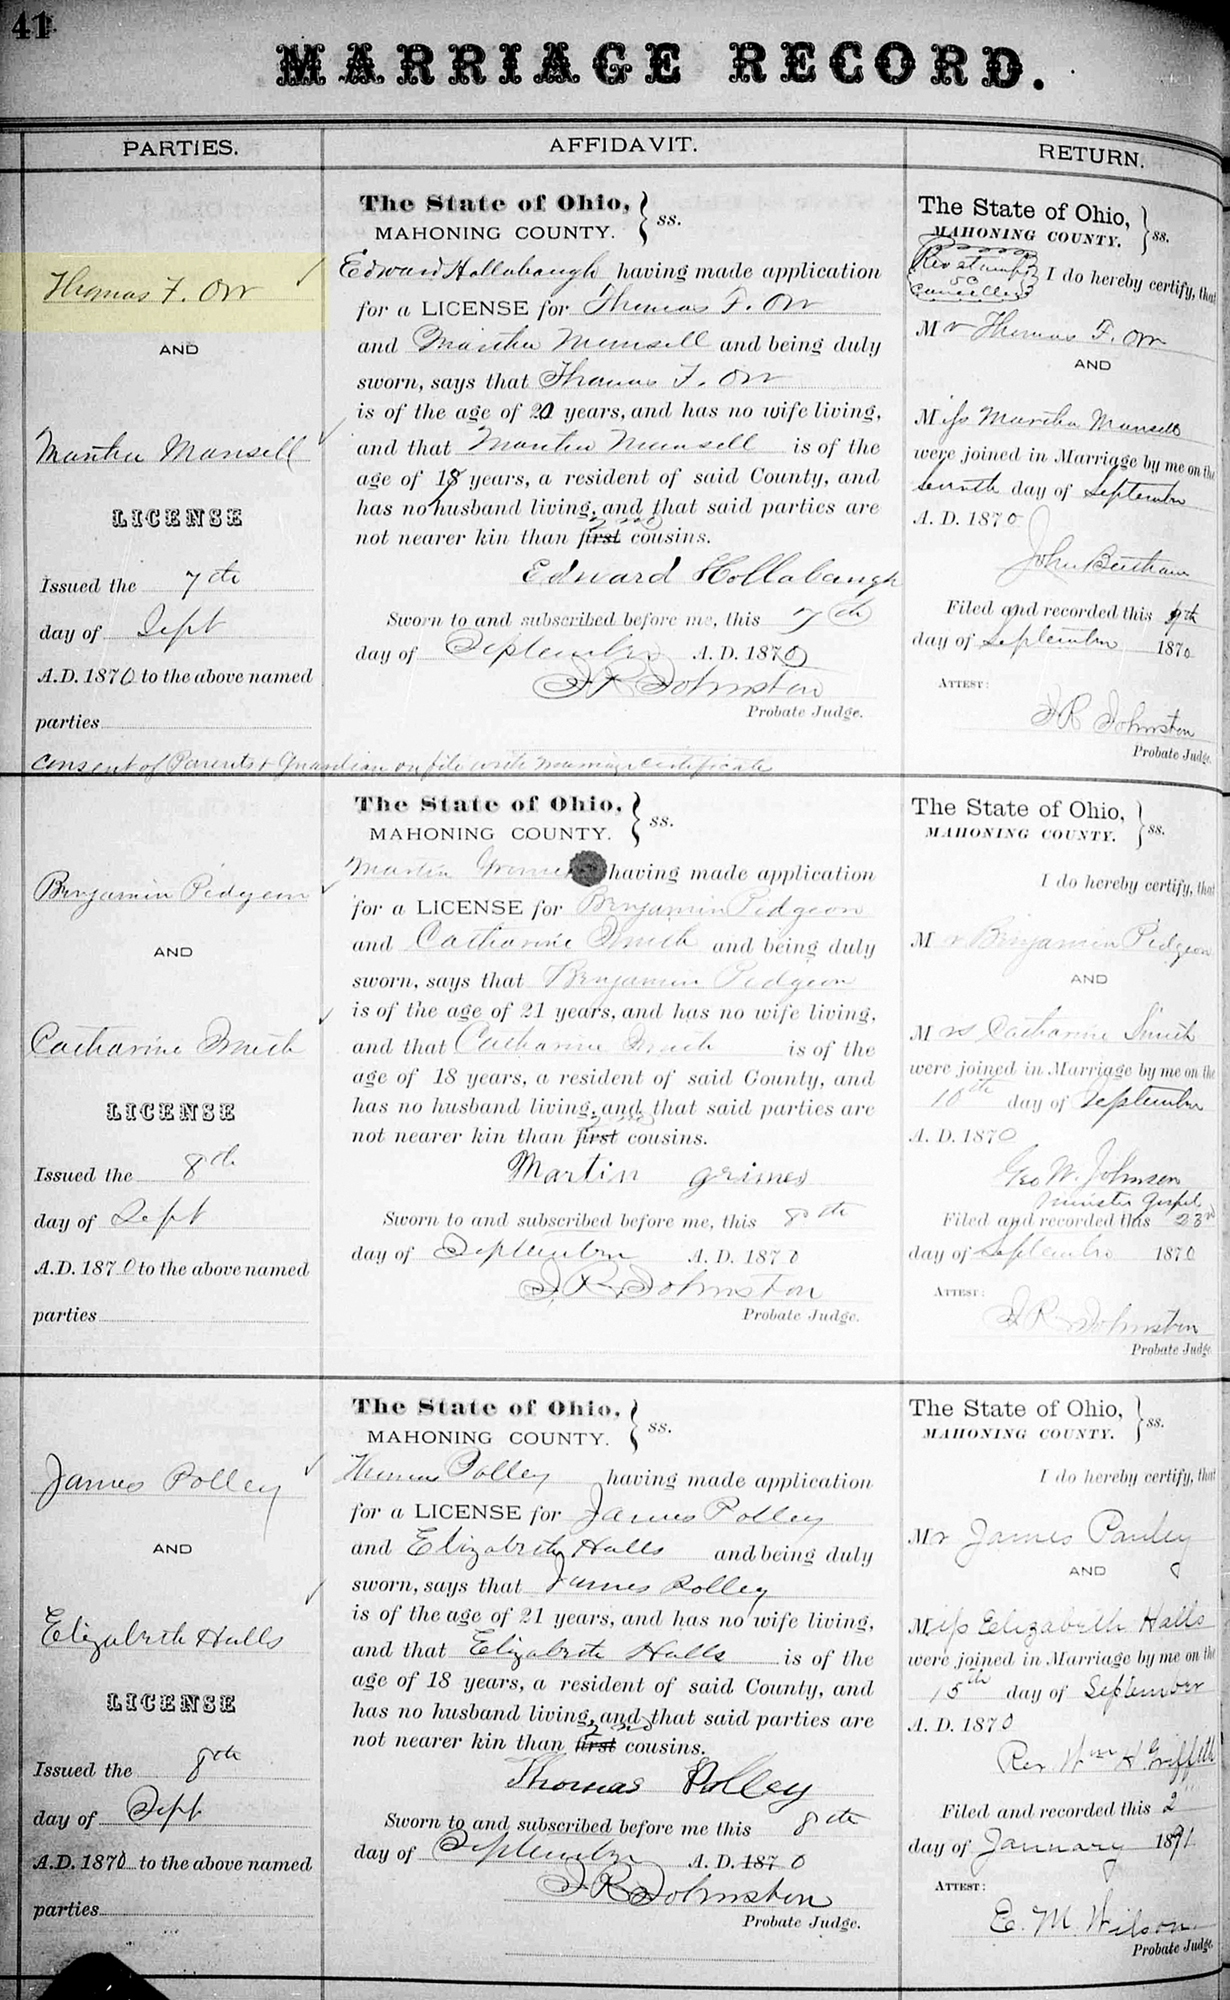 41
MARRIAGE RECORD.
PARTIES.
AFFIDAVIT.
RETURN.
Thomas F. Orr
AND
Martha Mansell
LICENSE
Issued the 7th
day of Sept
A.D. 1870 to the above named
parties
The State of Ohio,
MAHONING COUNTY. } ss.
Edward Hollabaugh having made application
for a LICENSE for Thomas F. Orr
and Martha Munsell and being duly
sworn, says that Thomas F. Orr
is of the age of 20 years, and has no wife living,
and that Martha Munsell is of the
age of 18 years, a resident of said County, and
has no husband living, and that said parties are
2nd
not nearer kin than first cousins.
Edward Hollabaugh
Sworn to and subscribed before me, this 7th
day of September A.D. 1870
J R Johnston
Probate Judge.
The State of Ohio,
MAHONING COUNTY. } ss.
Rev stamps
50
cancelled
I do hereby certify, that
Mr Thomas F. Orr
AND
Miss Martha Mansell
were joined in Marriage by me on the
seventh day of September
A. D. 1870
John
Filed and recorded this 9th
day of September 1870
ATTEST:
J R Johnston
Probate Judge.
Consent of Parents & Guardian on file with marriage certificate
Benjamin Pidgeon
AND
Catharine Smith
LICENSE
Issued the 8th
day of Sept
A.D. 1870 to the above named
parties
The State of Ohio,
MAHONING COUNTY. } ss.
Martin having made application
for a LICENSE for Benjamin Pidgeon
and Catharine Smith and being duly
sworn, says that Benjamin Pidgeon
is of the age of 21 years, and has no wife living,
and that Catharine Smith is of the
age of 18 years, a resident of said County, and
has no husband living, and that said parties are
2nd
not nearer kin than first cousins.
Martin grimes
Sworn to and subscribed before me, this 8th
day of September A.D. 1870
J R Johnston
Probate Judge.
The State of Ohio,
MAHONING COUNTY. } ss.
I do hereby certify, that
Mr Benjamin Pidgeon
AND
Mrs Catharine Smith
were joined in Marriage by me on the
10th day of September
A. D. 1870
Geo W. Johnson
Minister Gospel
Filed and recorded this 23rd
day of September 1870
ATTEST:
J R Johnston
Probate Judge.
James Polley
AND
Elizabeth Halls
LICENSE
Issued the 8th
day of Sept
A.D. 1870 to the above named
parties
The State of Ohio,
MAHONING COUNTY. } ss.
Thomas Polley having made application
for a LICENSE for James Polley
and Elizabeth Halls and being duly
sworn, says that James Polley
is of the age of 21 years, and has no wife living,
and that Elizabeth Halls is of the
age of 18 years, a resident of said County, and
has no husband living, and that said parties are
2nd
not nearer kin than first cousins.
Thomas Polley
Sworn to and subscribed before me this 8th
day of September A.D. 1870
J R Johnston
Probate Judge.
The State of Ohio,
MAHONING COUNTY. } ss.
I do hereby certify, that
Mr James Pauley
AND
Miss Elizabeth Halls
were joined in Marriage by me on the
15th day of September
A. D. 1870
Rev. Wm H Griffith
Filed and recorded this 2"
day of January 1891
ATTEST:
E. M. Wilson
Probate Judge.